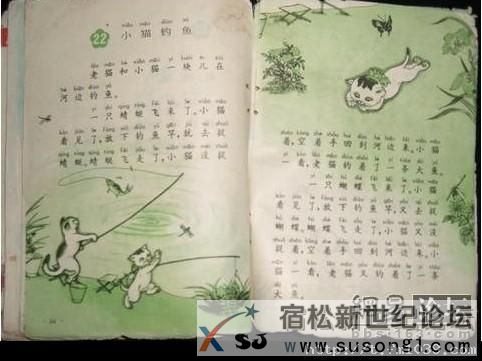 22 小猫钓鱼
老猫和小猫一块儿在
河边钓鱼。
一只蜻蜓飞来了。小猫
看见了,放下钓鱼竿,就去捉
蜻蜓。蜻蜓飞走了,小猫没捉
着,空着手回到河边来。小猫
一看,老猫钓着了一条大鱼。
一只蝴蝶飞来了。小猫
看见了,放下钓鱼竿,又去捉
蝴蝶。蝴蝶飞走了,小猫又没捉
着,空着手回到河边来。小猫
一看,老猫又钓着了一条
大鱼。
SJ
宿松新世纪论坛
论坛